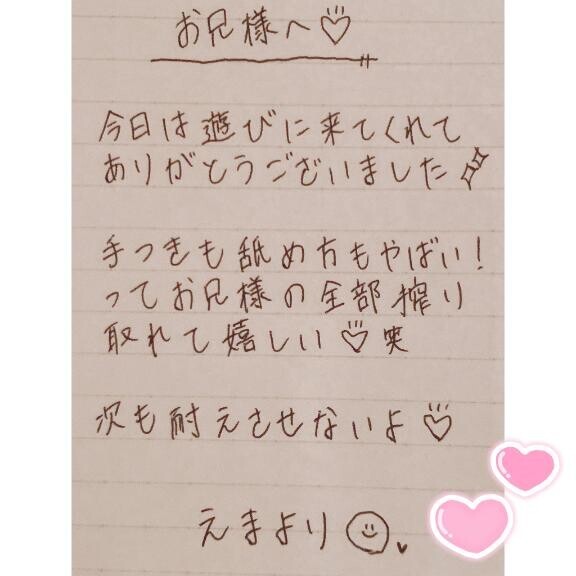 お兄様へ♡
今日は遊びに来てくれて
ありがとうございました
手つきも舐め方もやばい!
ってお兄様の全部搾り
取れて嬉しい♡笑
次も耐えさせないよ♡
えまより